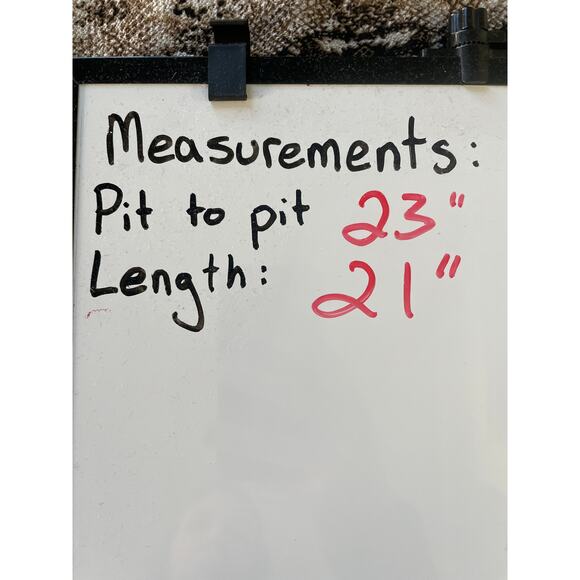 Measurements:
Pit to pit 23"
Length: 21"